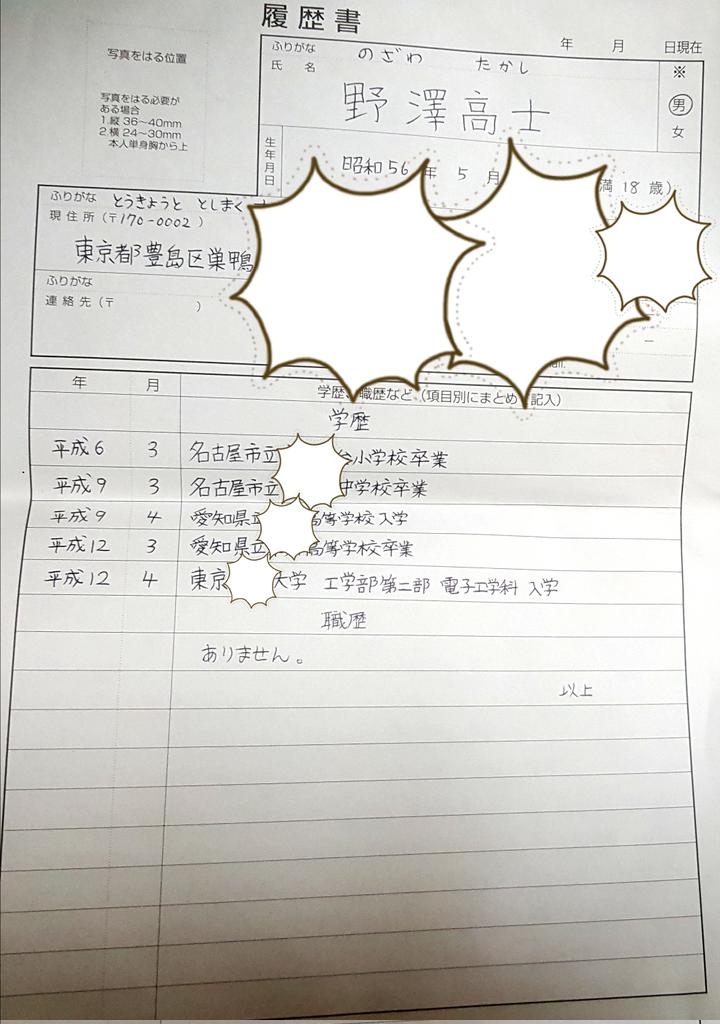 履歴書
年 月 日現在
写真をはる位置
写真をはる必要が
ある場合
1.縦 36〜40mm
2.横 24〜30mm
本人単身胸から上
ふりがな のざわ たかし
氏名 野澤高士
※
男
女
生年月日 昭和56年 5月 満 18 歳)
ふりがな とうきょうと としまく
現住所(〒170-0002)
東京都豊島区巣鴨
ふりがな
連絡先(〒 )
年 月 学歴、職歴など(項目別にまとめ 記入)
学歴
平成6 3 名古屋市立 小学校卒業
平成9 3 名古屋市立 中学校卒業
平成9 4 愛知県立 高等学校入学
平成12 3 愛知県立 高等学校卒業
平成12 4 東京 大学 工学部第二部 電子工学科 入学
職歴
ありません。
以上